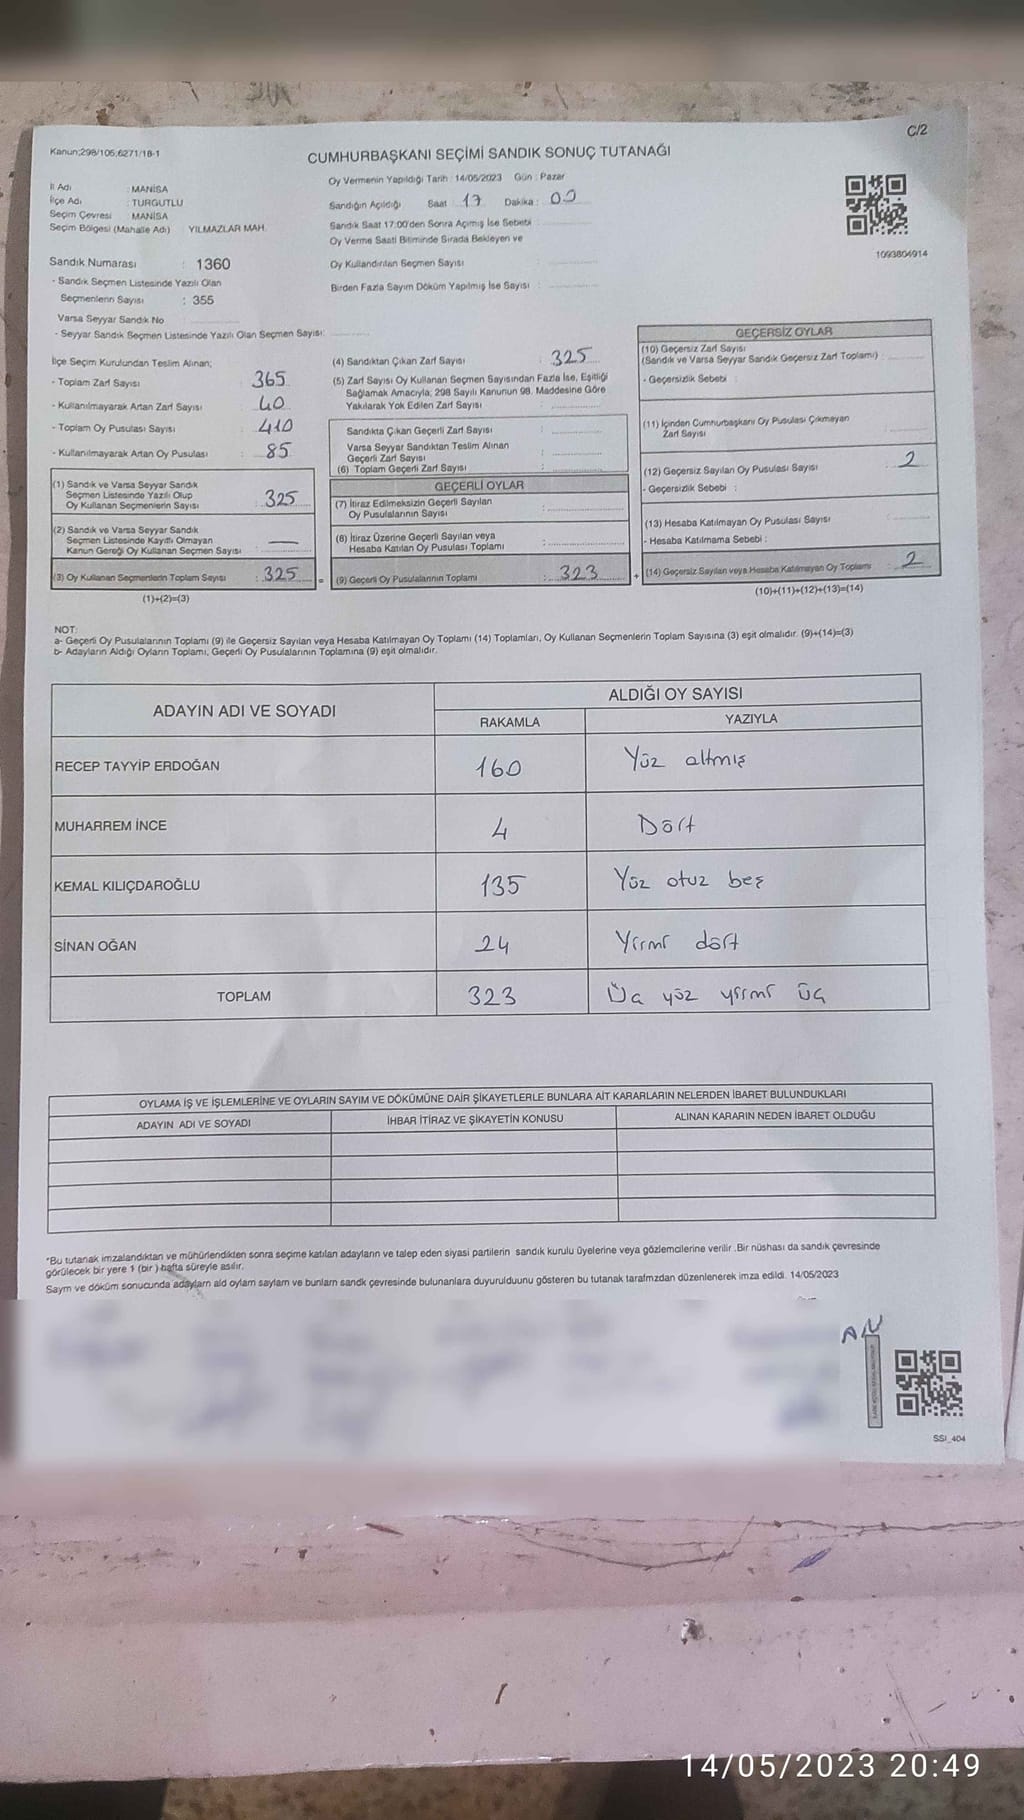 C/2
Kanun;298/105;6271/18-1
CUMHURBAŞKANI SEÇİMİ SANDIK SONUÇ TUTANAĞI
İl Adı : MANİSA
İlçe Adı : TURGUTLU
Seçim Çevresi : MANİSA
Seçim Bölgesi (Mahalle Adı) : YILMAZLAR MAH.
Oy Vermenin Yapıldığı Tarih : 14/05/2023 Gün : Pazar
Sandığın Açıldığı Saat : 17 Dakika : 00
Sandık Saat 17:00'den Sonra Açımış İse Sebebi :
Oy Verme Saati Bitiminde Sırada Bekleyen ve
Oy Kullandırılan Seçmen Sayısı :
Birden Fazla Sayım Döküm Yapılmış İse Sayısı :
1093804914
Sandık Numarası : 1360
- Sandık Seçmen Listesinde Yazılı Olan
Seçmenlerin Sayısı : 355
Varsa Seyyar Sandık No
- Seyyar Sandık Seçmen Listesinde Yazılı Olan Seçmen Sayısı:
İlçe Seçim Kurulundan Teslim Alınan;
- Toplam Zarf Sayısı : 365
- Kullanılmayarak Artan Zarf Sayısı : 40
- Toplam Oy Pusulası Sayısı : 410
- Kullanılmayarak Artan Oy Pusulası : 85
(1) Sandık ve Varsa Seyyar Sandık
Seçmen Listesinde Yazılı Olup
Oy Kullanan Seçmenlerin Sayısı : 325
(2) Sandık ve Varsa Seyyar Sandık
Seçmen Listesinde Kayıtlı Olmayan
Kanun Gereği Oy Kullanan Seçmen Sayısı : —
(3) Oy Kullanan Seçmenlerin Toplam Sayısı : 325
(1)+(2)=(3)
=
(4) Sandıktan Çıkan Zarf Sayısı : 325
(5) Zarf Sayısı Oy Kullanan Seçmen Sayısından Fazla İse, Eşitliği
Sağlamak Amacıyla; 298 Sayılı Kanunun 98. Maddesine Göre
Yakılarak Yok Edilen Zarf Sayısı :
Sandıkta Çıkan Geçerli Zarf Sayısı :
Varsa Seyyar Sandıktan Teslim Alınan
Geçerli Zarf Sayısı :
(6) Toplam Geçerli Zarf Sayısı :
GEÇERLİ OYLAR
(7) İtiraz Edilmeksizin Geçerli Sayılan
Oy Pusulalarının Sayısı :
(8) İtiraz Üzerine Geçerli Sayılan veya
Hesaba Katılan Oy Pusulası Toplamı :
(9) Geçerli Oy Pusulalarının Toplamı : 323
+
GEÇERSİZ OYLAR
(10) Geçersiz Zarf Sayısı
(Sandık ve Varsa Seyyar Sandık Geçersiz Zarf Toplamı) :
- Geçersizlik Sebebi :
(11) İçinden Cumhurbaşkanı Oy Pusulası Çıkmayan
Zarf Sayısı :
(12) Geçersiz Sayılan Oy Pusulası Sayısı : 2
- Geçersizlik Sebebi :
(13) Hesaba Katılmayan Oy Pusulası Sayısı :
- Hesaba Katılmama Sebebi :
(14) Geçersiz Sayılan veya Hesaba Katılmayan Oy Toplamı : 2
(10)+(11)+(12)+(13)=(14)
NOT:
a- Geçerli Oy Pusulalarının Toplamı (9) ile Geçersiz Sayılan veya Hesaba Katılmayan Oy Toplamı (14) Toplamları, Oy Kullanan Seçmenlerin Toplam Sayısına (3) eşit olmalıdır. (9)+(14)=(3)
b- Adayların Aldığı Oyların Toplamı, Geçerli Oy Pusulalarının Toplamına (9) eşit olmalıdır.
ADAYIN ADI VE SOYADI
ALDIĞI OY SAYISI
RAKAMLA YAZIYLA
RECEP TAYYİP ERDOĞAN 160 Yüz altmış
MUHARREM İNCE 4 Dört
KEMAL KILIÇDAROĞLU 135 Yüz otuz beş
SİNAN OĞAN 24 Yirmi dört
TOPLAM 323 Üç yüz yirmi üç
OYLAMA İŞ VE İŞLEMLERİNE VE OYLARIN SAYIM VE DÖKÜMÜNE DAİR ŞİKAYETLERLE BUNLARA AİT KARARLARIN NELERDEN İBARET BULUNDUKLARI
ADAYIN ADI VE SOYADI İHBAR İTİRAZ VE ŞİKAYETİN KONUSU ALINAN KARARIN NEDEN İBARET OLDUĞU
*Bu tutanak imzalandıktan ve mühürlendikten sonra seçime katılan adayların ve talep eden siyasi partilerin sandık kurulu üyelerine veya gözlemcilerine verilir .Bir nüshası da sandık çevresinde
görülecek bir yere 1 (bir ) hafta süreyle asılır.
Saym ve döküm sonucunda adaylarn ald oylam saylam ve bunlarn sandk çevresinde bulunanlara duyurulduunu gösteren bu tutanak tarafmzdan düzenlenerek imza edildi. 14/05/2023
AN
SSI_404
14/05/2023 20:49